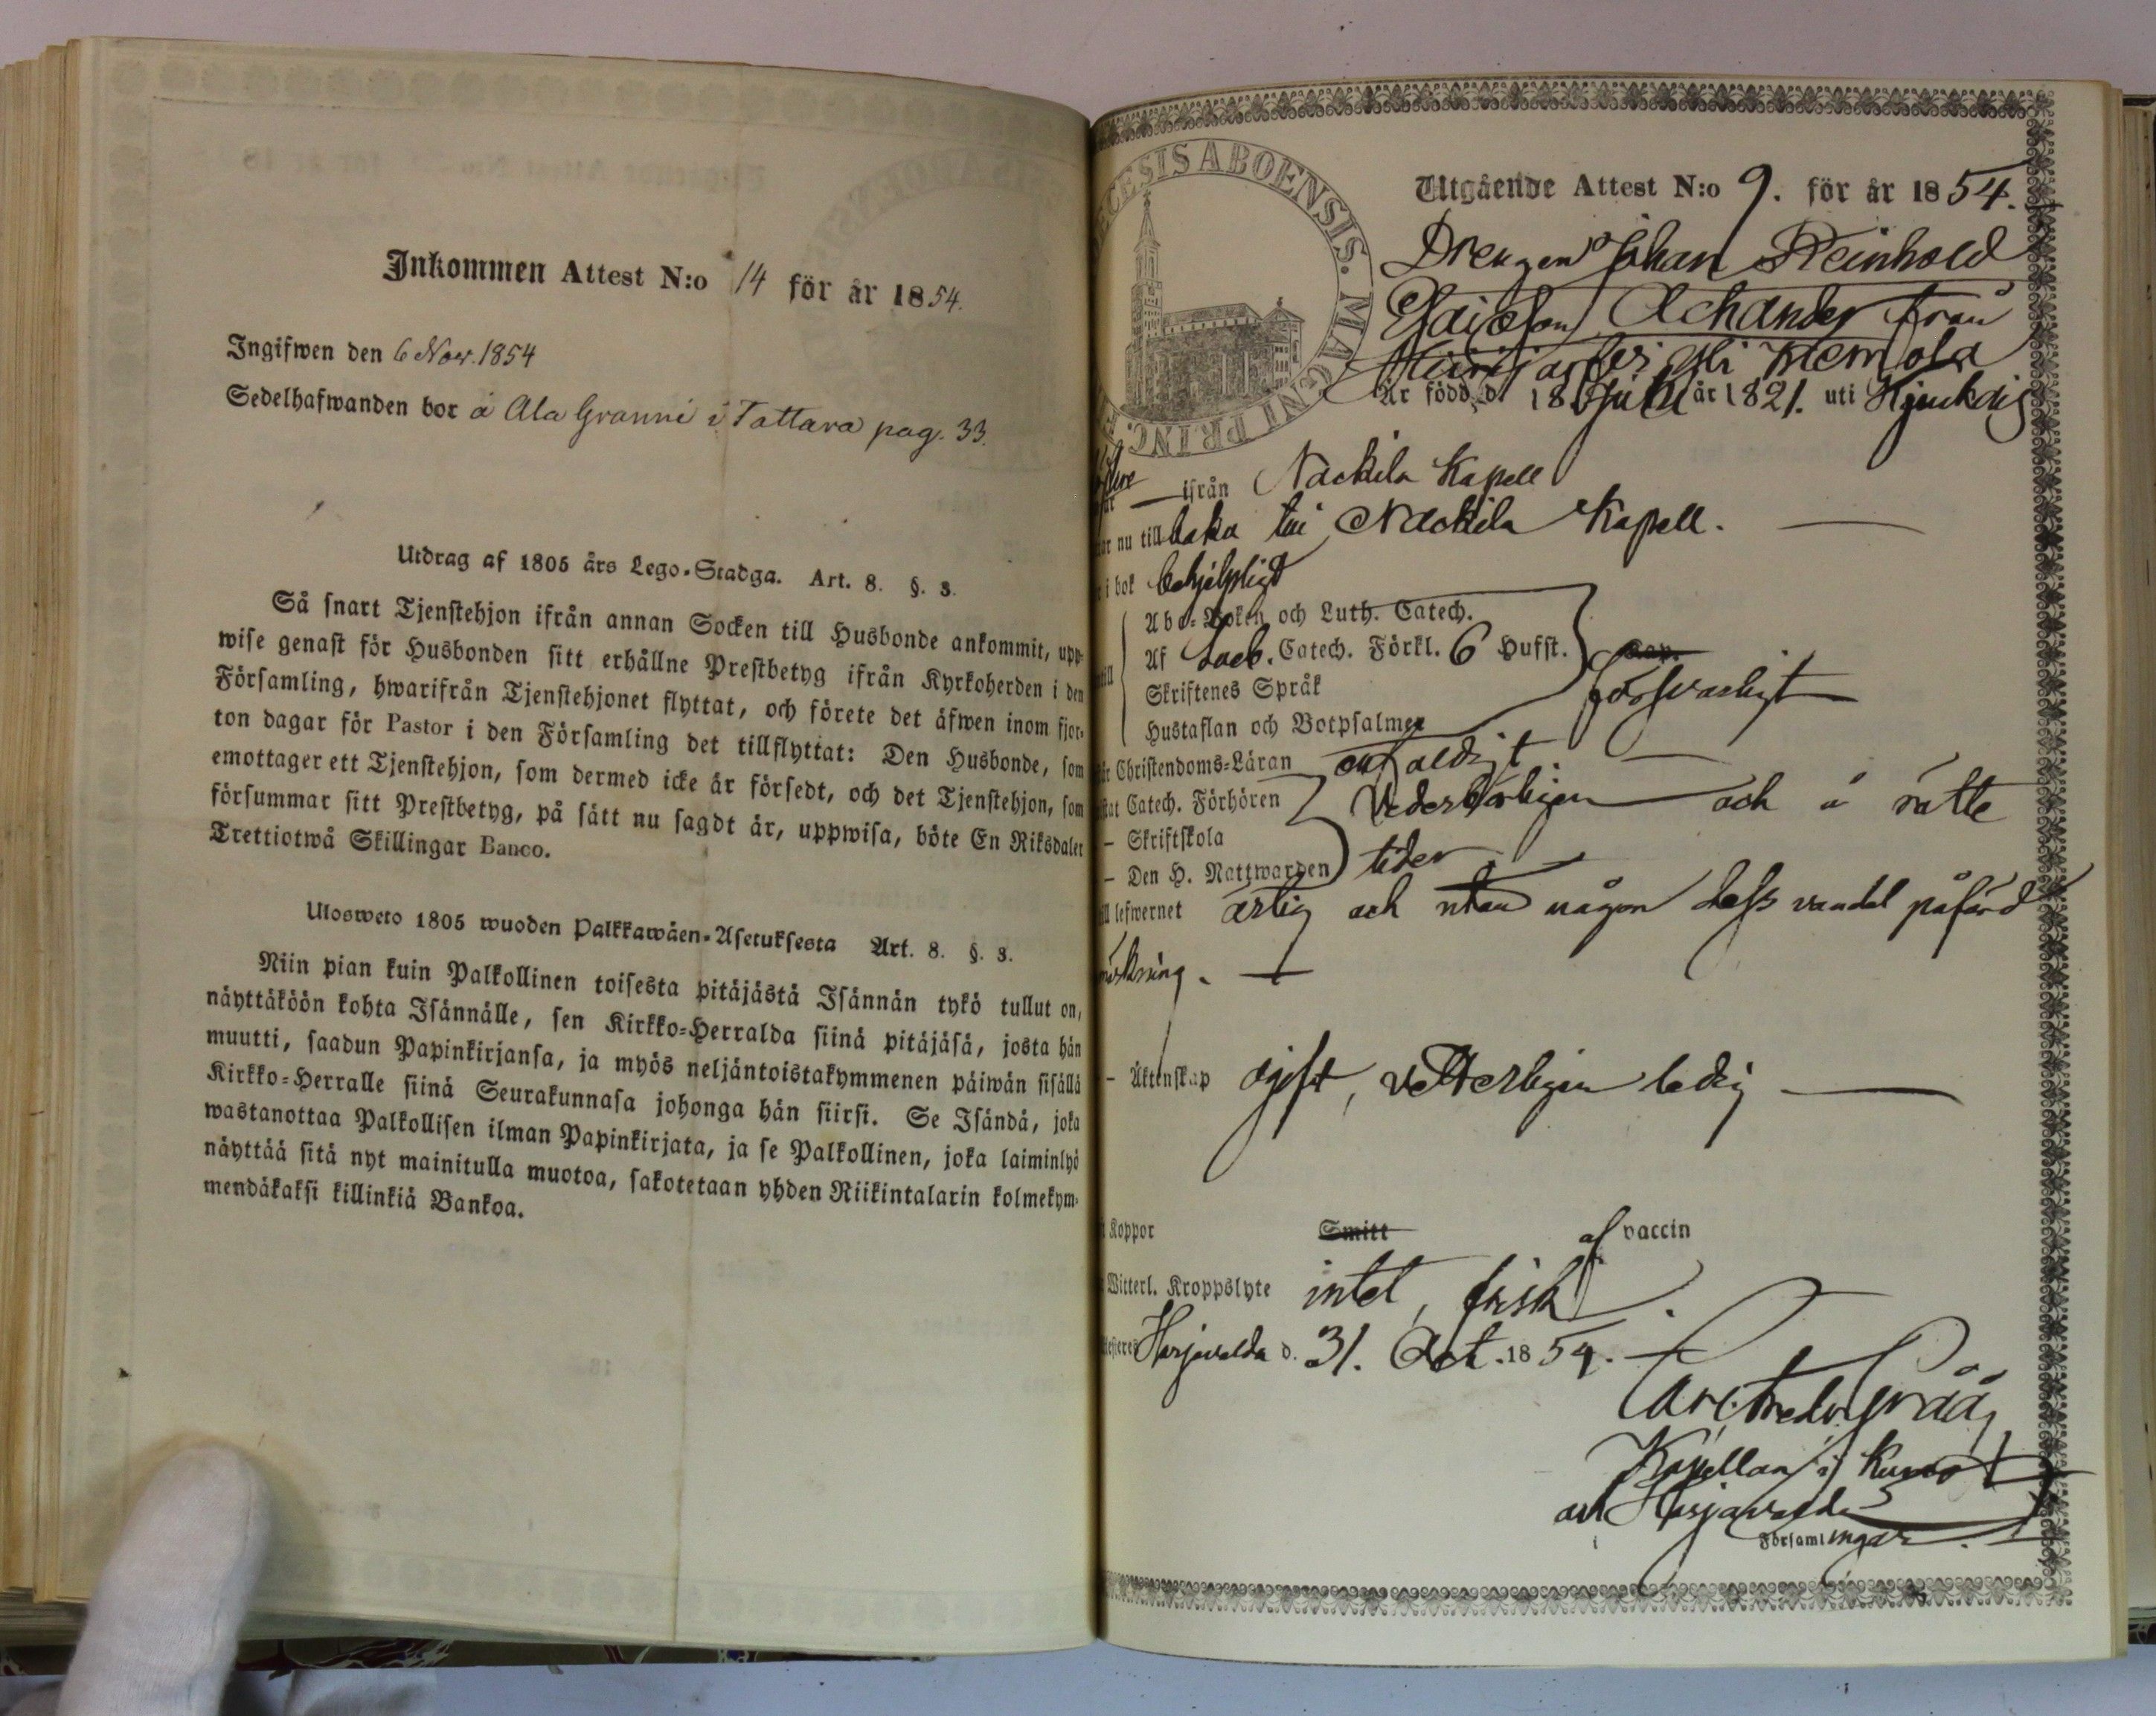 Inkommen Attest N:o 14 för år 1854.
Ingifwen den 6 Nov. 1854
Sedelhafwanden bor å Ala Granni i Tattara pag. 33.
Utdrag af 1805 års Lego-Stadga. Art. 8. §. 3.
Så snart Tjenstehjon ifrån annan Socken till Husbonde ankommit, upp-
wise genast för Husbonden sitt erhållne Prestbetyg ifrån Kyrkoherden i den
Församling, hwarifrån Tjenstehjonet flyttat, och förete det äfwen inom fjor-
ton dagar för Pastor i den Församling det tillflyttat: Den Husbonde, som
emottager ett Tjenstehjon, som dermed icke är försedt, och det Tjenstehjon, som
försummar sitt Prestbetyg, på sätt nu sagdt är, uppwisa, böte En Riksdaler
Trettiotwå Skillingar Banco.
Ulosweto 1805 wuoden Palkkawäen-Asetuksesta Art. 8. §. 3.
Niin pian kuin Palkollinen toisesta pitäjästä Isännän tykö tullut on,
näyttäköön kohta Isännälle, sen Kirkko-Herralda siinä pitäjäsä, josta hän
muutti, saadun Papinkirjansa, ja myös neljäntoistakymmenen päiwän sisällä
Kirkko-Herralle siinä Seurakunnasa johonga hän siirsi. Se Isändä, joka
wastanottaa Palkollisen ilman Papinkirjata, ja se Palkollinen, joka laiminlyö
näyttää sitä nyt mainitulla muotoa, sakotetaan yhden Riikintalarin kolmekym-
mendäkaksi killinkiä Bankoa.
DIOECESIS ABOENSIS. MAGNI PRINC. F
Utgående Attest N:o 9. för år 1854.
Drengen Johan Reinhold
Esaiæson Achander från
uti
Är född d. 18 Juli år 1821. uti
ifrån Nackila Kapell
nu tillbaka till Nackila Kapell.
i bok behjelpligt
Abc-Boken och Luth. Catech.
Af Catech. Förkl. 6 Hufst. Cap.
Skriftenes Språk försvarligt
Hustaflan och Botpsalmer
Christendoms-Läran enfaldigt
Catech. Förhören vederbörligen och å rätte
– Skriftskola
– Den H. Nattwarden tider
lefwernet ärlig och utan någon dess vandel påförd
– Äktenskap ogift, vetterligen ledig
Koppor Smitt af vaccin
Witterl. Kroppslyte intet, frisk.
Harjavalda d. 31. Oct. 1854.
Carl Fredr Grååg
Kapellan i Kumo
och Harjavalda
Församlingar.